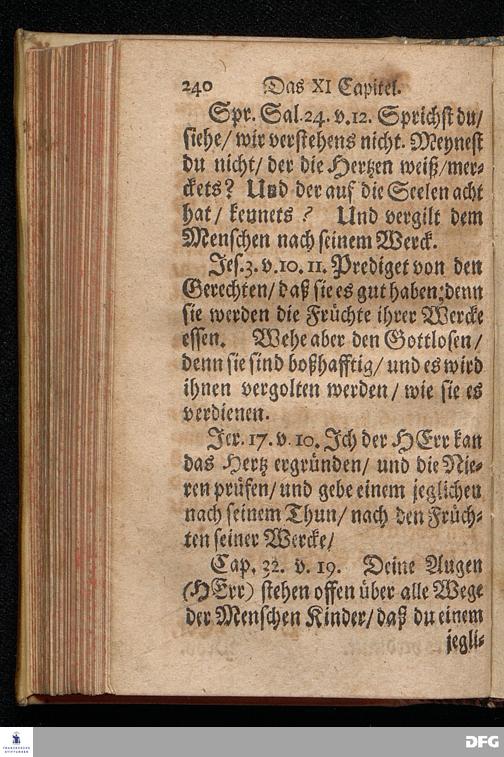 240 Das XI Capitel.
Spr. Sal. 24. v. 12. Sprichst du/
siehe/ wir verstehens nicht. Meynest
du nicht/ der die Hertzen weiß/ mer-
ckets? Und der auf die Seelen acht
hat/ kennets? Und vergilt dem
Menschen nach seinem Werck.
Jes. 3. v. 10. 11. Prediget von den
Gerechten/ daß sie es gut haben; denn
sie werden die Früchte ihrer Wercke
essen. Wehe aber den Gottlosen/
denn sie sind boßhafftig/ und es wird
ihnen vergolten werden/ wie sie es
verdienen.
Jer. 17. v. 10. Ich der HErr kan
das Hertz ergründen/ und die Nie-
ren prüfen/ und gebe einem jeglichen
nach seinem Thun/ nach den Früch-
ten seiner Wercke/
Cap. 32. v. 19. Deine Augen
(HErr) stehen offen über alle Wege
der Menschen Kinder/ daß du einem
jegli-
FRANCKESCHE
STIFTUNGEN
DFG